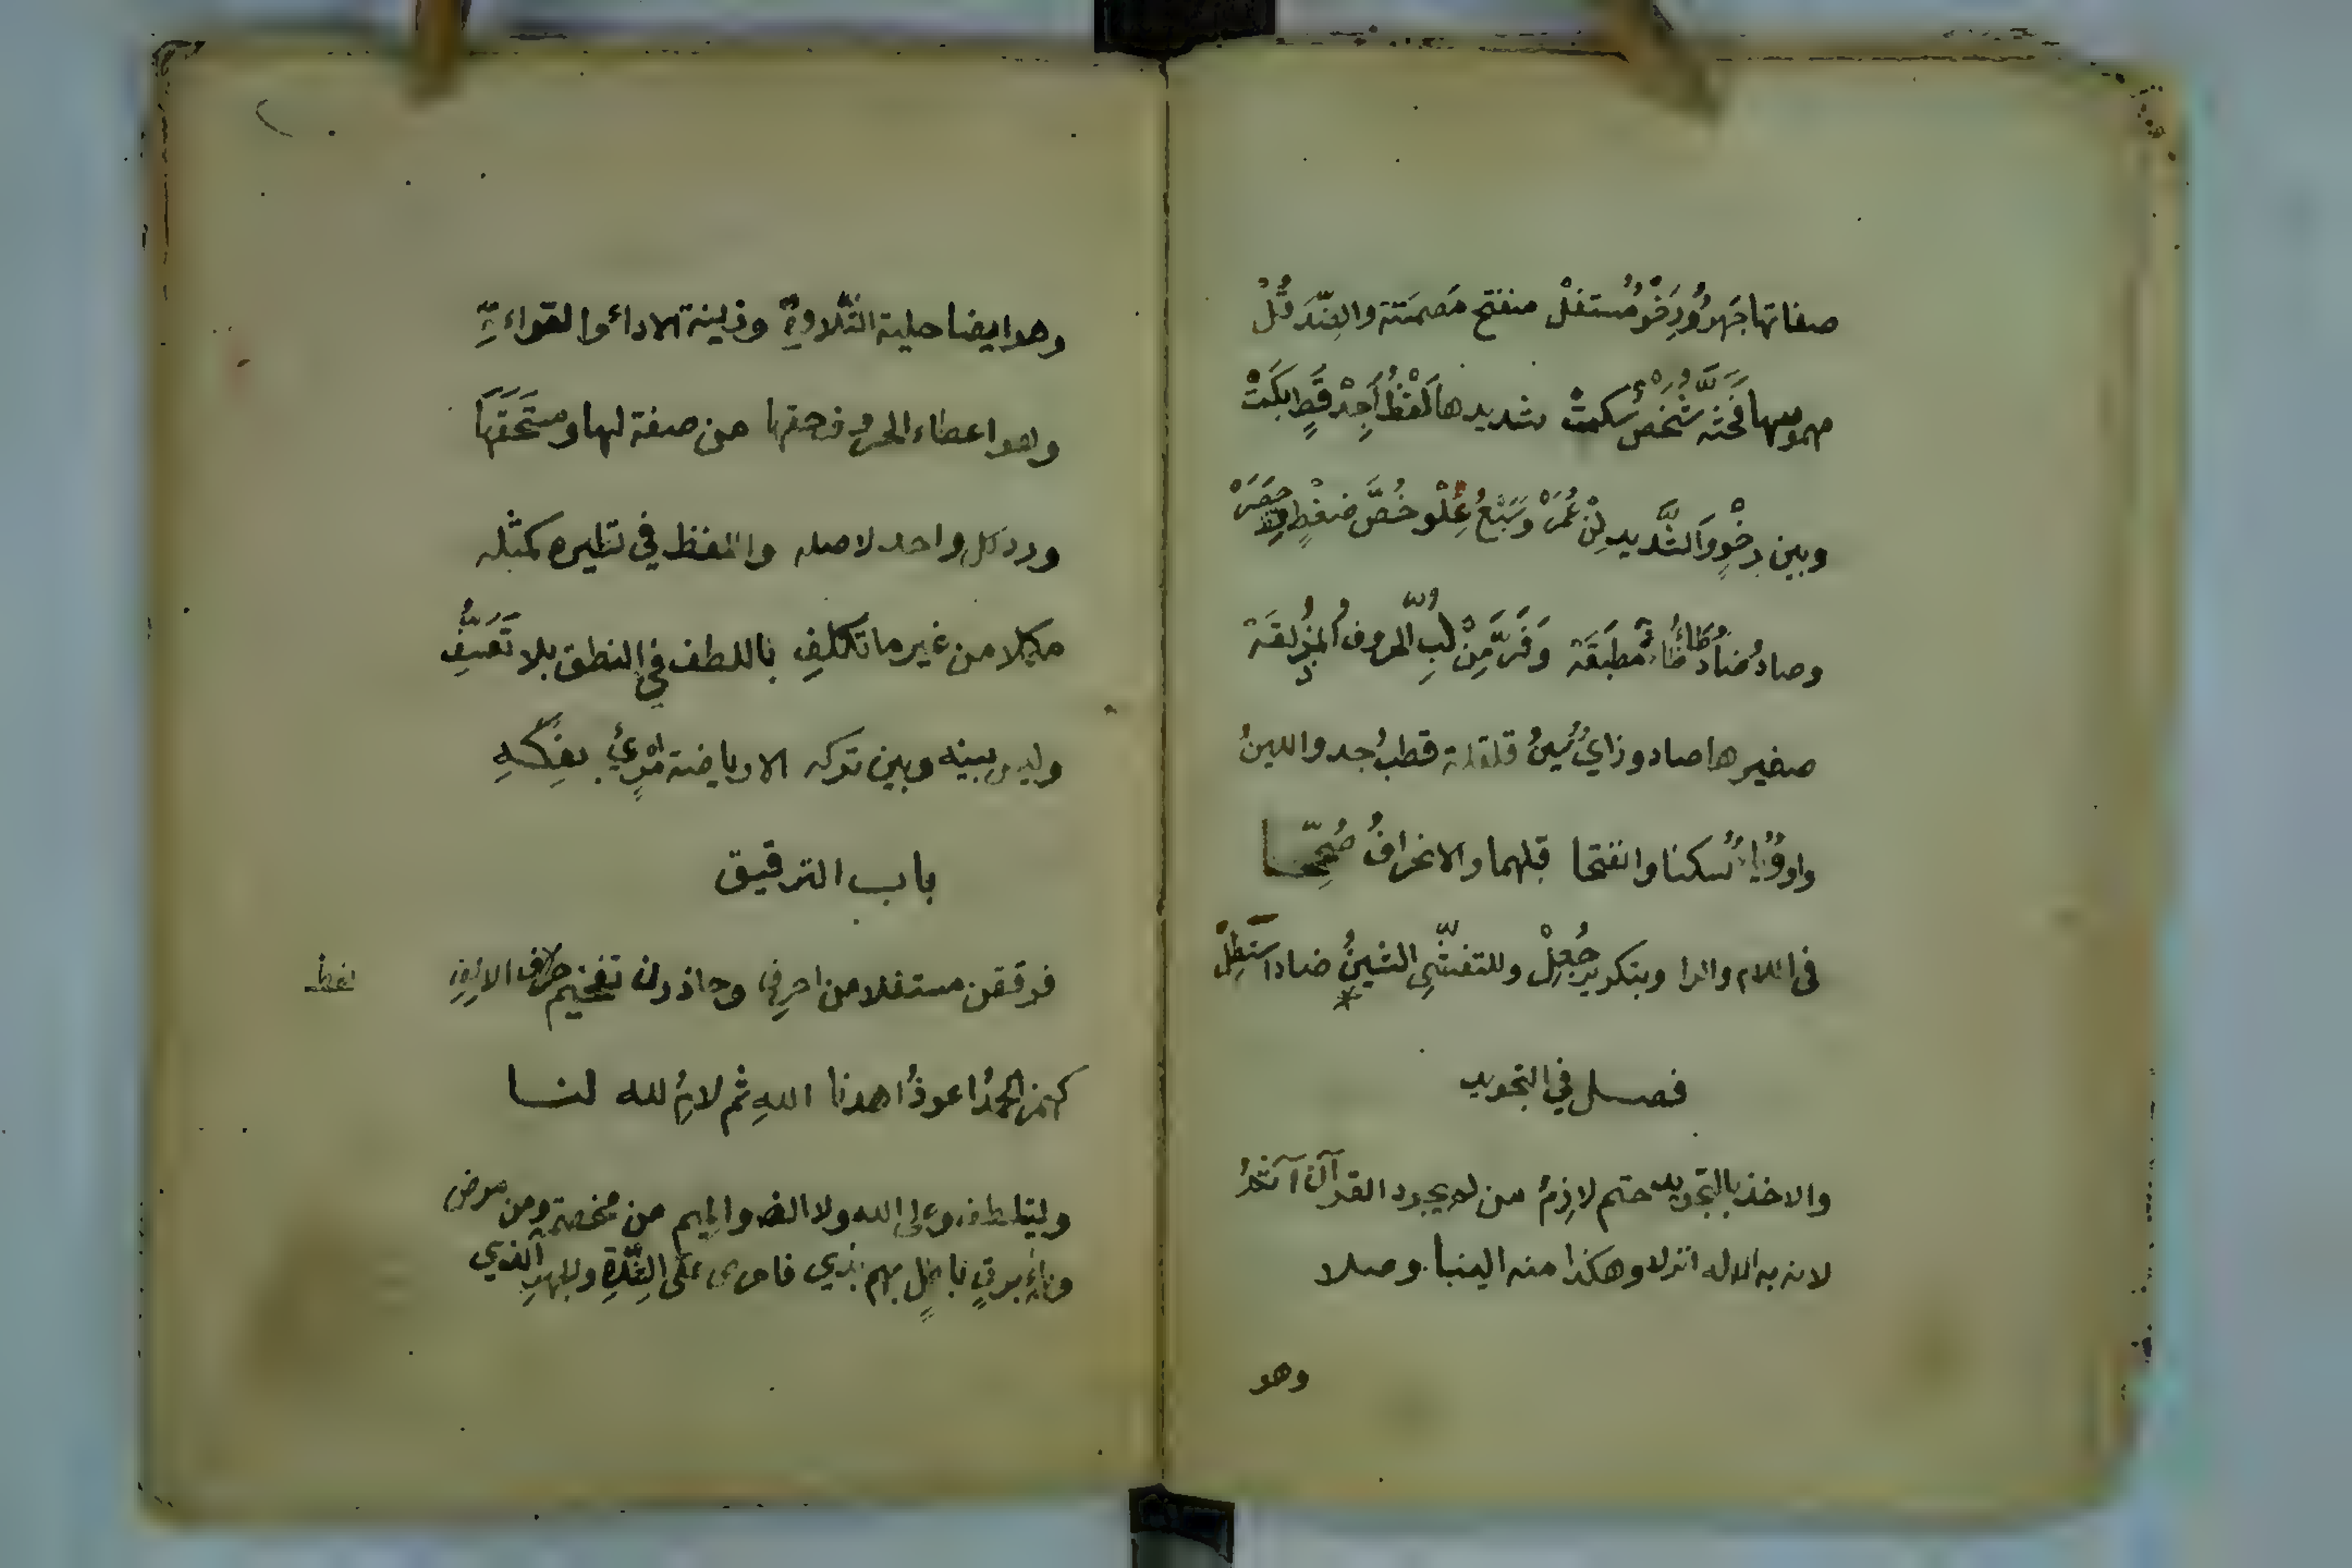 صفاتها جَهرٌ ورِخْوٌ مُستفلْ منفتح مُصمَتة والضّدَّ قُلْ
مهموسها فَحَثَّه شَخْصٌ سكتْ شديدها لَفْظُ أَجِدْ قَطٍ بَكَتْ
وبين رخْوٍ والشَّديد لِنْ عُمَرْ وسَبْعُ عُلْوٍ خُصَّ ضغْطٍ قِظْ حَصَرْ
وصادُ ضادٌ طاءُ ظاءٌ مُطبَقَة وَفَرَّ مِنْ لُبِّ الحروفُ المُذْلقَة
صفيرها صاد وزايٌ سينُ قلقلة قطبُ جد واللينُ
واوٌ وياءٌ سُكنا وانفتحا قبلهما والانحرافُ صُحِّحا
في اللام والرا وبتكرير جُعِلْ وللتفشّي الشينُ ضادا استَطِلْ
فصل في التجويد
والاخذ بالتجويد حتم لازِمُ من لم يجود القرآن آثمُ
لانه به الاله انزلا وهكذا منه الينا وصلا
وهو
وهو ايضا حلية التِّلاوةِ وزينة الاداء والقراءةِ
وهو اعطاء الحروف حقها من صفة لها ومستَحَقَها
ورد كل واحد لاصله واللفظ في نظيره كمثله
مكملا من غير ما تكلفِ باللطف في النطق بلا تَعَسُّفِ
وليس بينه وبين تركه الا رياضة امْرِئٍ بفِكّهِ
باب الترقيق
فرققن مستفلا من احرفِ وحاذرن تفخيم حرف الالِفِ
لفظ
كهمز الحمدُ اعوذُ اهدنا اللهِ ثم لامُ لله لنا
وليتلطف وعلى الله ولا الض والميم من مخمصة ومن مرض
وباءِ برقٍ باطلٍ بهم بذي فاحرص على الشِّدَّةِ والجهرِ الذي